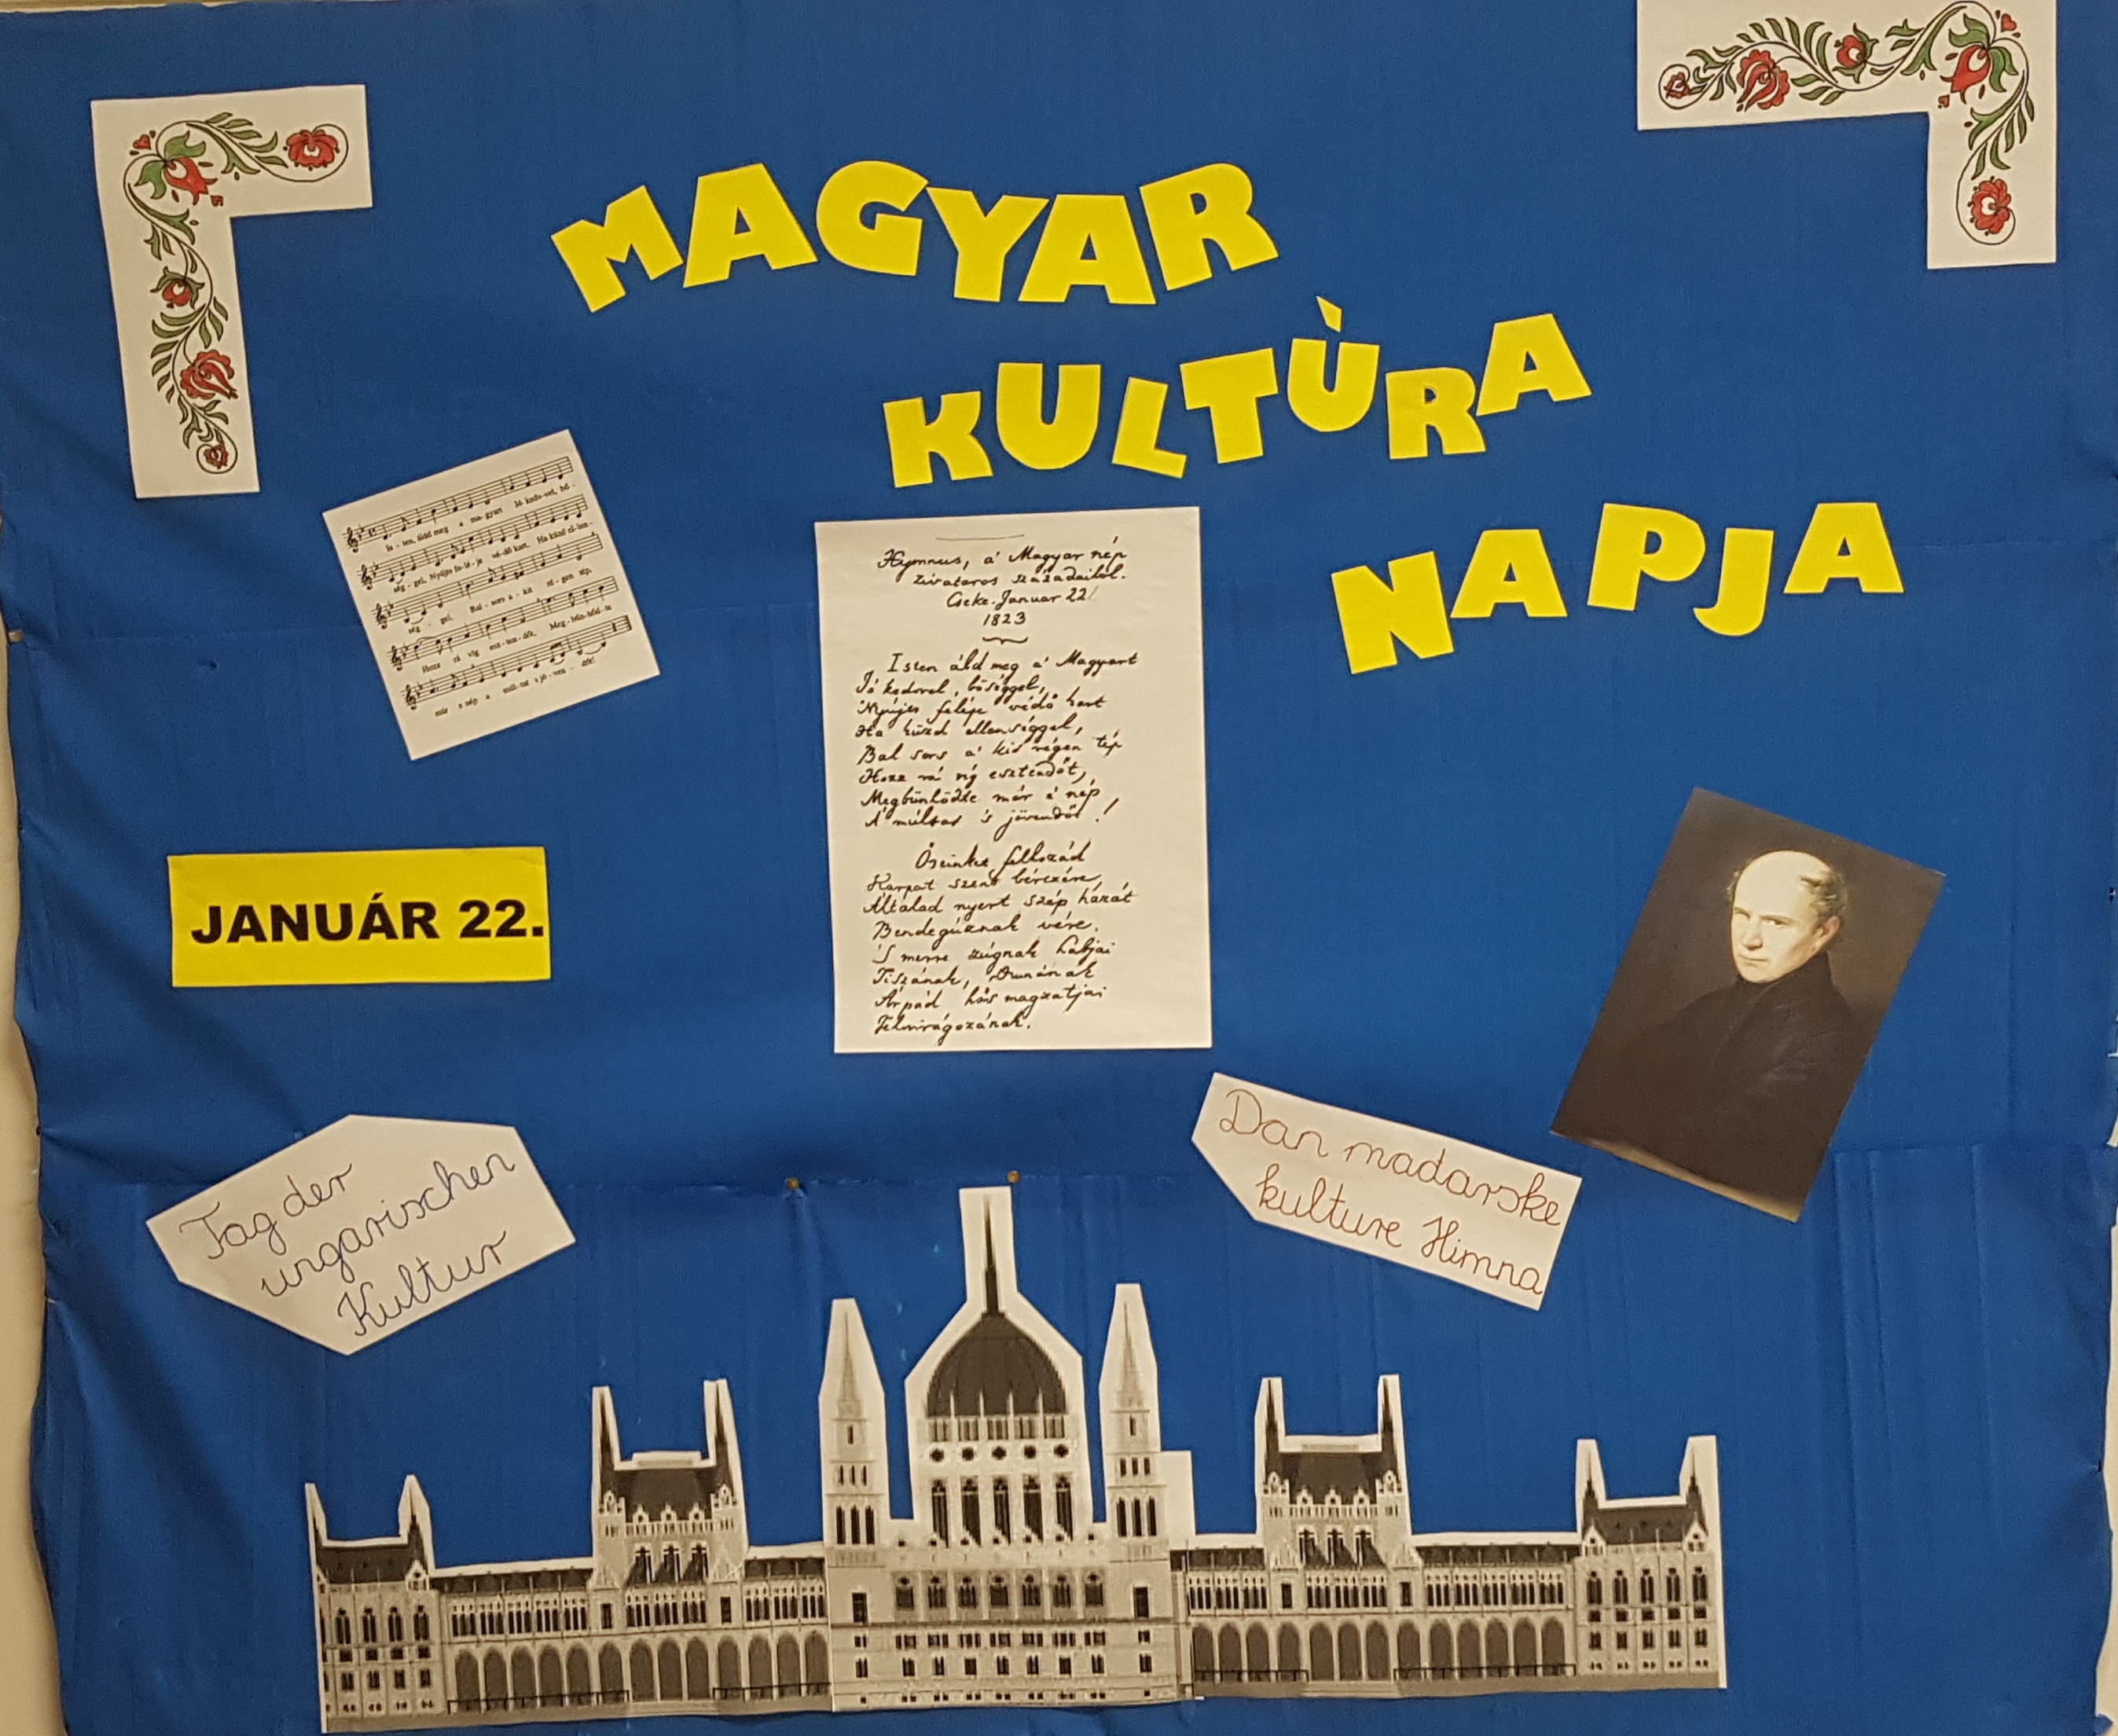 MAGYAR
KULTÙRA
NAPJA
Is - ten, áldd meg a ma - gyart Jó kedv-vel, bő -
ség - gel, Nyújts fe-lé-je vé-dő kart, Ha küzd el-len -
ség - gel, Bal - sors a - kit ré - gen tép,
Hozz rá víg esz-ten-dőt, Meg-bűn-hőd-te
már e nép a múl-tat s jö-ven - dőt!
Hymnus, a' Magyar nép
zivataros századaiból.
Cseke. Januar 22.
1823
Isten áld meg a' Magyart
Jó kedvvel, bőséggel,
Nyújts feléje védő kart
Ha küzd ellenséggel,
Bal sors a' kit régen tép
Hozz rá víg esztendőt,
Megbűnhödte már e' nép
A' múltat 's jövendőt!
Őseinket felhozád
Kárpát szent bérczére,
Általad nyert szép hazát
Bendegúznak vére.
'S merre zúgnak habjai
Tiszának, Dunának
Árpád hős magzatjai
Felvirágozának.
JANUÁR 22.
Tag der
ungarischen
Kultur
Dan mađarske
kulture Himna